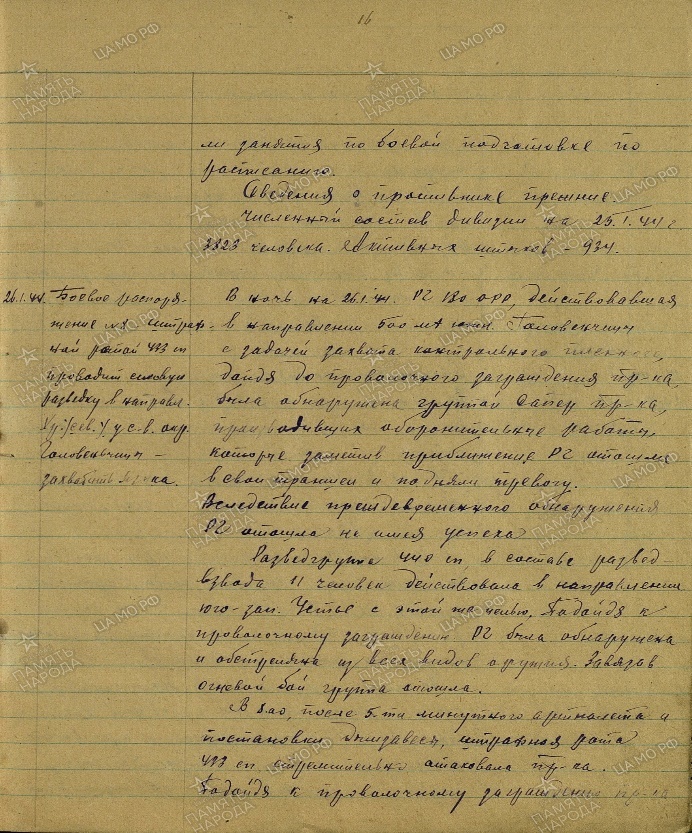 16
ли занятия по боевой подготовке по
расписанию.
Сведения о противнике прежние.
Численный состав дивизии на 25.1.44 г
3823 человека. Активных штыков - 934.
26.1.44. Боевое распоря-
жение штраф-
ной ротой 493 сп
проводит силовую
разведку в направл.
/сев./ у с.-в. окр.
Головенчицы -
захватить пр-ка.
В ночь на 26.1.44. РГ 130 орр, действовавшая
в направлении 500 мт Головенчицы
с задачей захвата контрольного пленного,
дойдя до проволочного заграждения пр-ка,
была обнаружена группой сапер пр-ка,
производивших оборонительные работы,
которые заметив приближение РГ отошли
в свои траншеи и подняли тревогу.
Вследствие преждевременного обнаружения
РГ отошла не имея успеха
Разведгруппа 440 сп, в составе развед-
взвода 11 человек действовала в направлении
юго-зап. Устье с этой же целью. Подойдя к
проволочному заграждению РГ была обнаружена
и обстреляна из всех видов оружия. Завязав
огневой бой группа отошла.
В 8.00, после 5-ти минутного артналета и
постановки дымзавесы, штрафная рота
493 сп стремительно атаковала пр-ка.
Подойдя к проволочному заграждению пр-ка
ПАМЯТЬ НАРОДА
ЦАМО.РФ